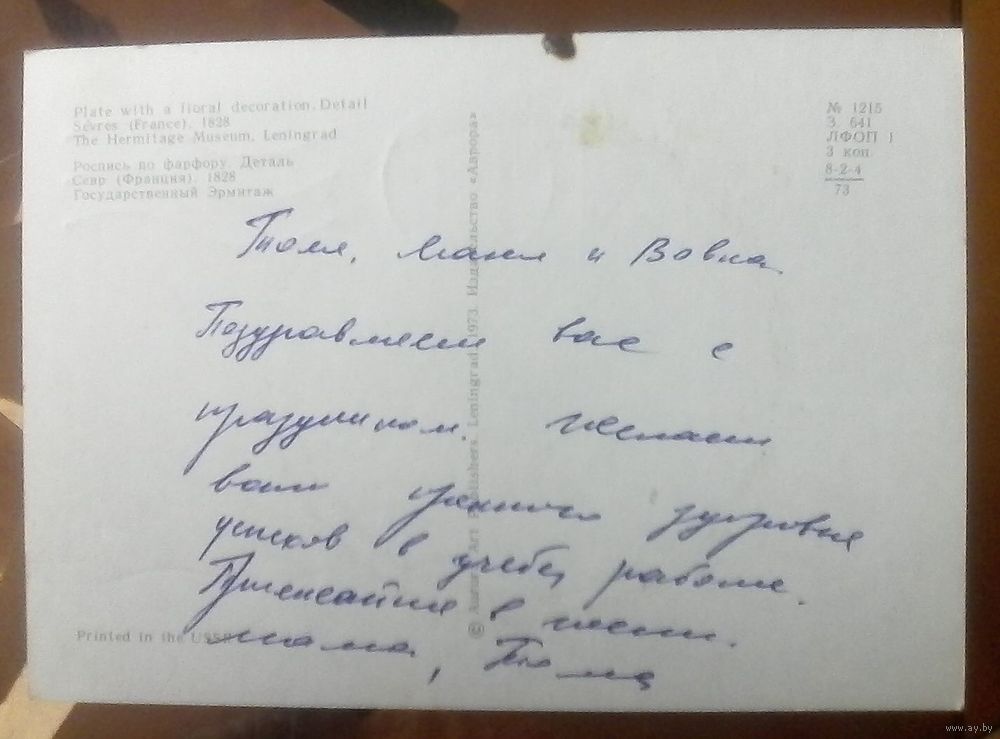 Plate with a floral decoration. Detail
Sèvres (France). 1828
The Hermitage Museum, Leningrad
Роспись по фарфору. Деталь
Севр (Франция). 1828
Государственный Эрмитаж
№ 1215
З. 641
ЛФОП 1
3 коп
8-2-4
73
Толя, Маня и Вовка
Поздравляем вас с
праздником. Желаем
вам крепкого здоровья
успехов в учебе, работе.
Приезжайте в гости.
мама, Тома
Printed in the USSR
© Aurora Art Publishers. Leningrad. 1973. Издательство «Аврора»
www.ay.by